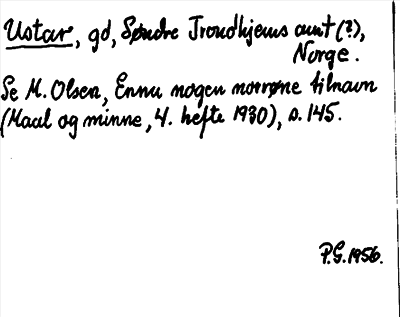 Ustar, gd, Søndre Trondhjems amt (?),
Norge.
Se M. Olsen, Ennu nogen norrøne tilnavn
(Maal og minne, 4. hefte 1930), s. 145.
P.G. 1956.